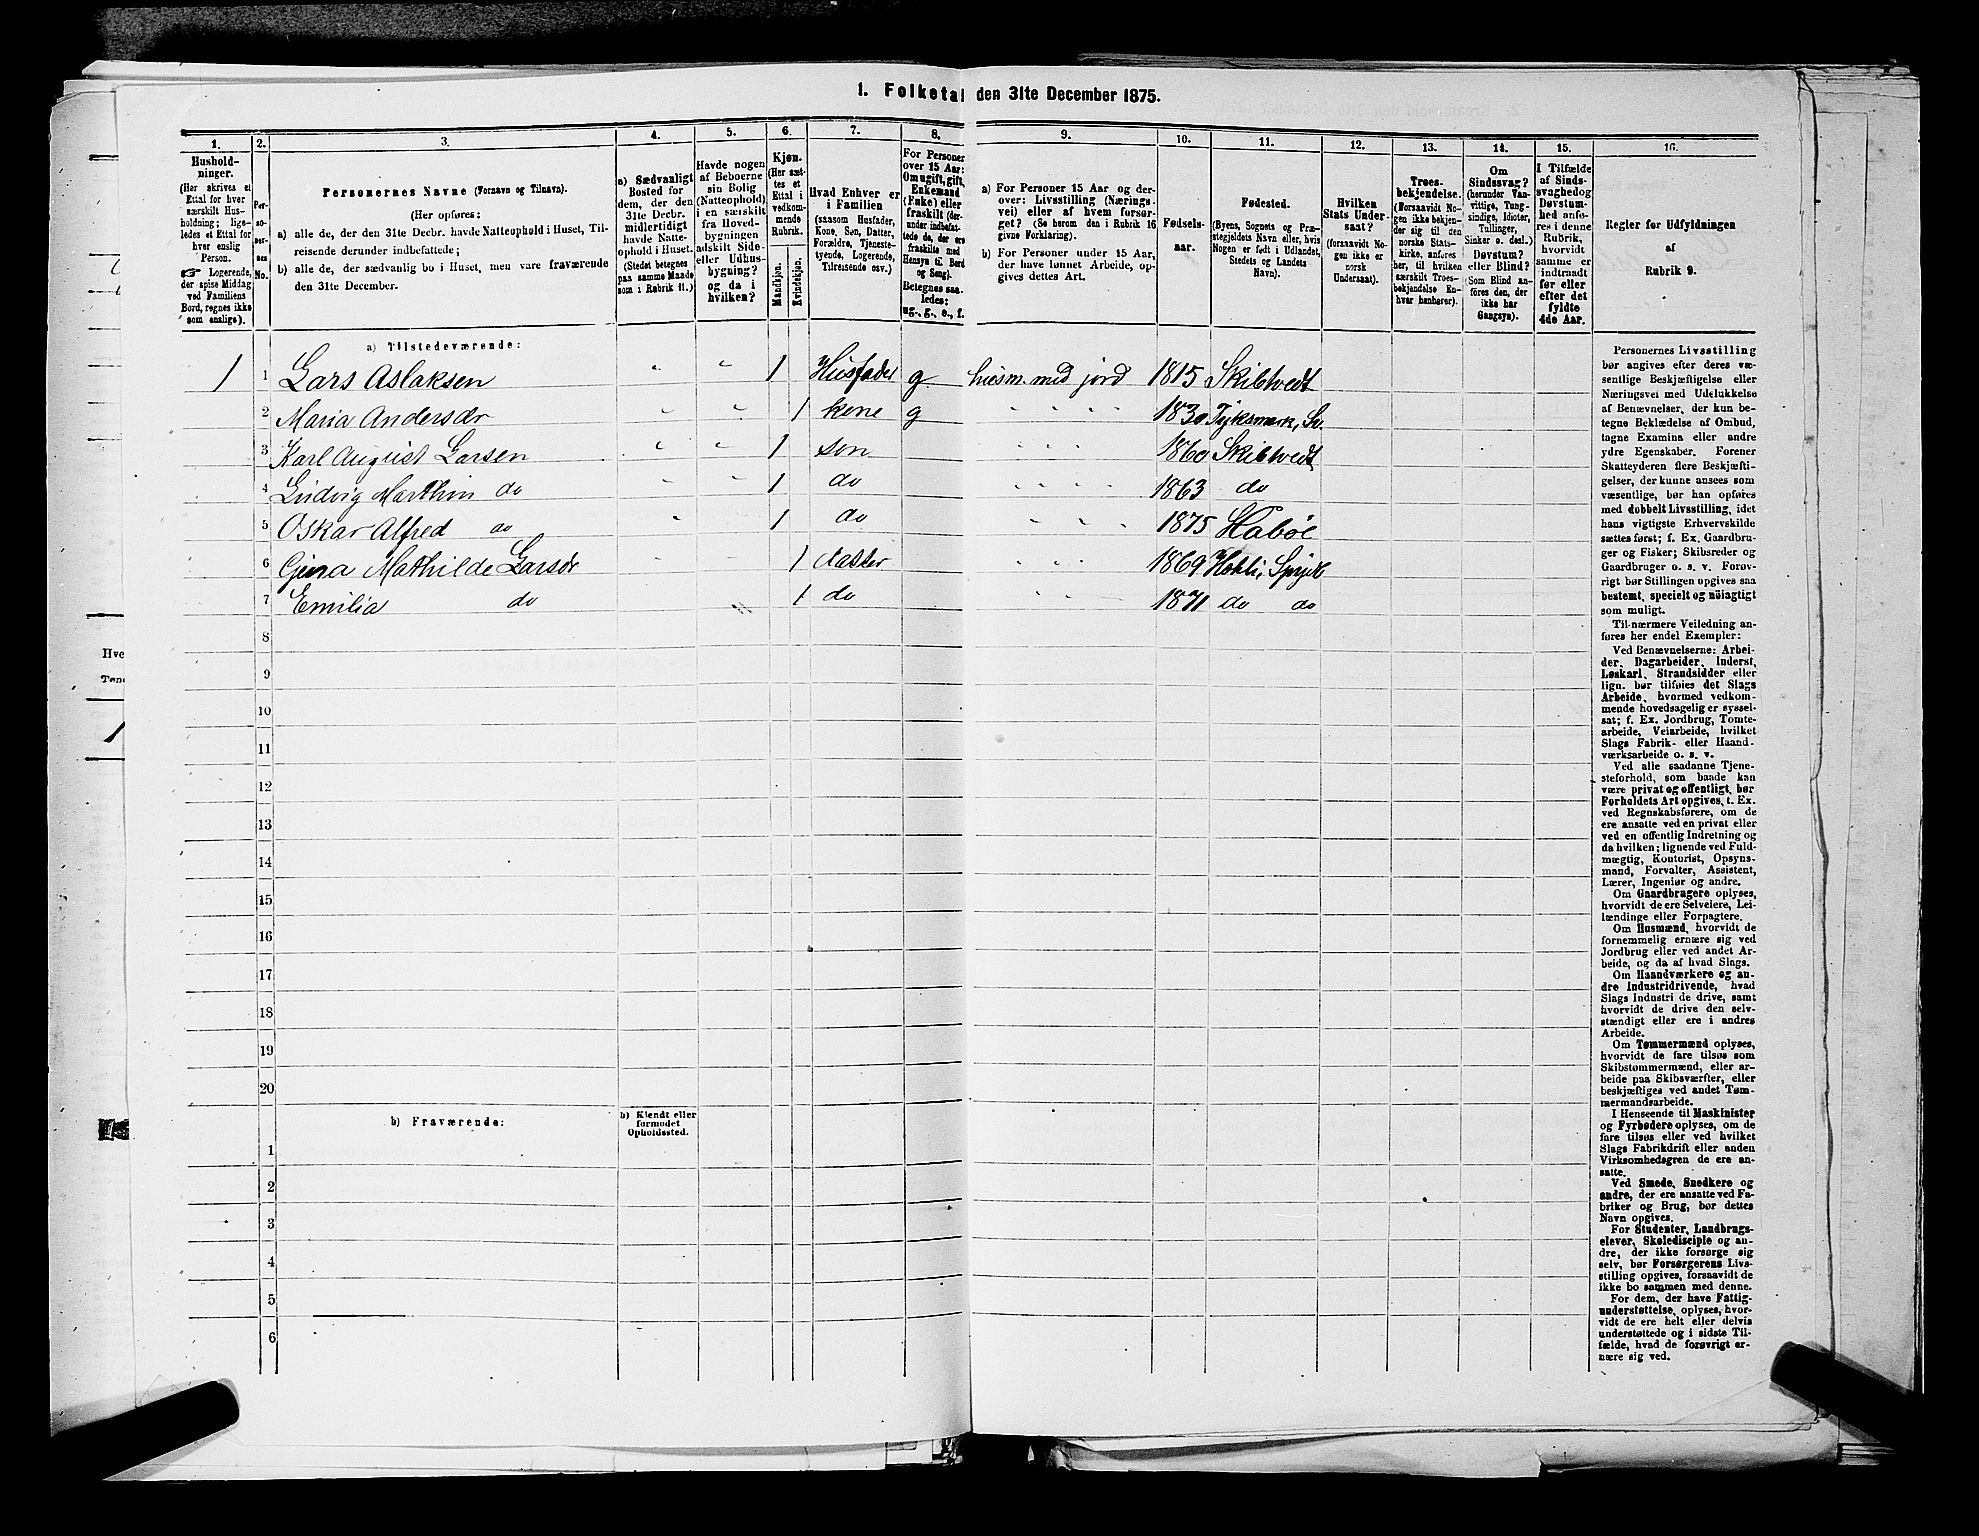 1. Folketal den 31te December 1875.
1. 2. 3. 4. 5. 6. 7. 8. 9. 10. 11. 12. 13. 14. 15. 16.
Hushold-
ninger.
(Her skrives et
Ettal for hver
særskilt Hus-
holdning; lige-
ledes et Ettal for
hver enslig
Person.
☞ Logerende,
der spise Middag
ved Familiens
Bord, regnes ikke
som enslige).
Per-
so-
ner-
nes
No.
Personernes Navne (Fornavn og Tilnavn).
(Her opføres:
a) alle de, der den 31te Decbr. havde Natteophold i Huset, Til-
reisende derunder indbefattede;
b) alle de, der sædvanlig bo i Huset, men vare fraværende
den 31te December.
a) Sædvanligt
Bosted for
dem, der den
31te Decbr.
midlertidigt
havde Natte-
ophold i Huset.
(Stedet betegnes
paa samme Maade
som i Rubrik 11.)
Havde nogen
af Beboerne
sin Bolig
(Natteophold)
i en særskilt
fra Hoved-
bygningen
adskilt Side-
eller Udhus-
bygning?
og da i
hvilken?
Kjøn.
(Her sæt-
tes et
Ettal i
vedkom-
mende
Rubrik.
Mandkjøn.
Kvindekjøn.
Hvad Enhver er
i Familien
(saasom Husfader,
Kone, Søn, Datter,
Forældre, Tjeneste-
tyende, Logerende,
Tilreisende osv.)
For Personer
over 15 Aar:
Om ugift, gift,
Enkemand
(Enke) eller
fraskilt (der-
under indbefat-
tede de, der ere
fraskilte med
Hensyn til Bord
og Seng).
Betegnes saa-
ledes:
ug., g., e., f.
a) For Personer 15 Aar og der-
over: Livsstilling (Nærings-
vei) eller af hvem forsør-
get? (Se herom den i Rubrik 16
givne Forklaring).
b) For Personer under 15 Aar,
der have lønnet Arbeide, op-
gives dettes Art.
Fødsels-
aar.
Fødested.
(Byens, Sognets og Præ-
stegjeldets Navn eller, hvis
Nogen er født i Udlandet,
Stedets og Landets
Navn).
Hvilken
Stats Under-
saat?
(forsaavidt No-
gen ikke er
norsk
Undersaat).
Troes-
bekjendelse.
(Forsaavidt No-
gen ikke bekjen-
der sig til den
norske Stats-
kirke, anføres
her, til hvilken
særskilt Troes-
bekjendelse En-
hver henhører).
Om
Sindssvag?
(herunder Van-
vittige, Tung-
sindige, Idioter,
Tullinger,
Sinker o. desl.).
Døvstum?
eller Blind?
(Som Blind an-
føres den, der
ikke har
Gangsyn).
I Tilfælde
af Sinds-
svaghed og
Døvstum-
hed anfø-
res i denne
Rubrik,
hvorvidt
samme er
indtraadt
før eller
efter det
fyldte
4de Aar.
Regler for Udfyldningen
af
Rubrik 9.
a) Tilstedeværende:
1 1 Lars Aslaksen " " 1 Husfader g husm. med jord 1815 Skibtvedt
2 Maria Andersdr " " 1 kone g " " " " 1830
3 Karl August Larsen " " 1 søn " " " " 1860 Skibtvedt
4 Ludvig Marthin do " " 1 do " " " " 1863 do
5 Oskar Alfred do " " 1 do " " " " 1875 Habøl
6 Gina Mathilde Larsdr " " 1 datter " " " 1869
7 Emilia do " 1 do " " " 1871 do do
8
9
10
11
12
13
14
15
16
17
18
19
20
b) Fraværende:
b) Kjendt eller
formodet
Opholdssted.
1
2
3
4
5
6
Personernes Livsstilling
bør angives efter deres væ-
sentlige Beskjæftigelse eller
Næringsvei med Udelukkelse
af Benævnelser, der kun be-
tegne Beklædelse af Ombud,
tagne Examina eller andre
ydre Egenskaber. Forener
Skatteyderen flere Beskjæfti-
gelser, der kunne ansees som
væsentlige, bør han opføres
med dobbelt Livsstilling, idet
hans vigtigste Erhvervskilde
sættes først; f. Ex. Gaardbru-
ger og Fisker; Skibsreder og
Gaardbruger o. s. v. Forøv-
rigt bør Stillingen opgives saa
bestemt, specielt og nöiagtigt
som muligt.
Til nærmere Veiledning an-
føres her endel Exempler:
Ved Benævnelserne: Arbei-
der, Dagarbeider, Inderst,
Løskarl, Strandsidder eller
lign. bør tilføies det Slags
Arbeide, hvormed vedkom-
mende hovedsagelig er syssel-
sat; f. Ex. Jordbrug, Tomte-
arbeide, Veiarbeide, hvilket
Slags Fabrik- eller Haand-
værksarbeide o. s. v.
Ved alle saadanne Tjene-
steforhold, som baade kan
være privat og offentligt, bør
Forholdets Art opgives, t. Ex.
ved Regnskabsførere, om de
ere ansatte ved en privat eller
ved en offentlig Indretning og
da hvilken; lignende ved Fuld-
mægtig, Kontorist, Opsyns-
mand, Forvalter, Assistent,
Lærer, Ingeniør og andre.
Om Gaardbrugere oplyses,
hvorvidt de ere Selveiere, Lei-
lændinge eller Forpagtere.
Om Husmænd, hvorvidt de
fornemmelig ernære sig ved
Jordbrug eller ved andet Ar-
beide, og da af hvad Slags.
Om Haandværkere og an-
dre Industridrivende, hvad
Slags Industri de drive, samt
hvorvidt de drive den selv-
stændigt eller ere i andres
Arbeide.
Om Tømmermænd oplyses,
hvorvidt de fare tilsøs som
Skibstømmermænd, eller ar-
beide paa Skibsværfter, eller
beskjæftiges ved andet Tøm-
mermandsarbeide.
I Henseende til Maskinister
og Fyrbødere oplyses, om de
fare tilsøs eller ved hvilket
Slags Fabrikdrift eller anden
Virksomhedsgren de ere an-
satte.
Ved Smede, Snedkere og
andre, der ere ansatte ved Fa-
briker og Brug, bør dettes
Navn opgives.
For Studenter, Landbrugs-
elever, Skoledisciple og an-
dre, der ikke forsørge sig
selv, bør Forsørgerens Livs-
stilling opgives, forsaavidt de
ikke bo sammen med denne.
For dem, der have Fattig-
understøttelse, oplyses, hvor-
vidt de ere helt eller delvis
understøttede og i sidste Til-
fælde, hvad de forøvrigt er-
nære sig ved.